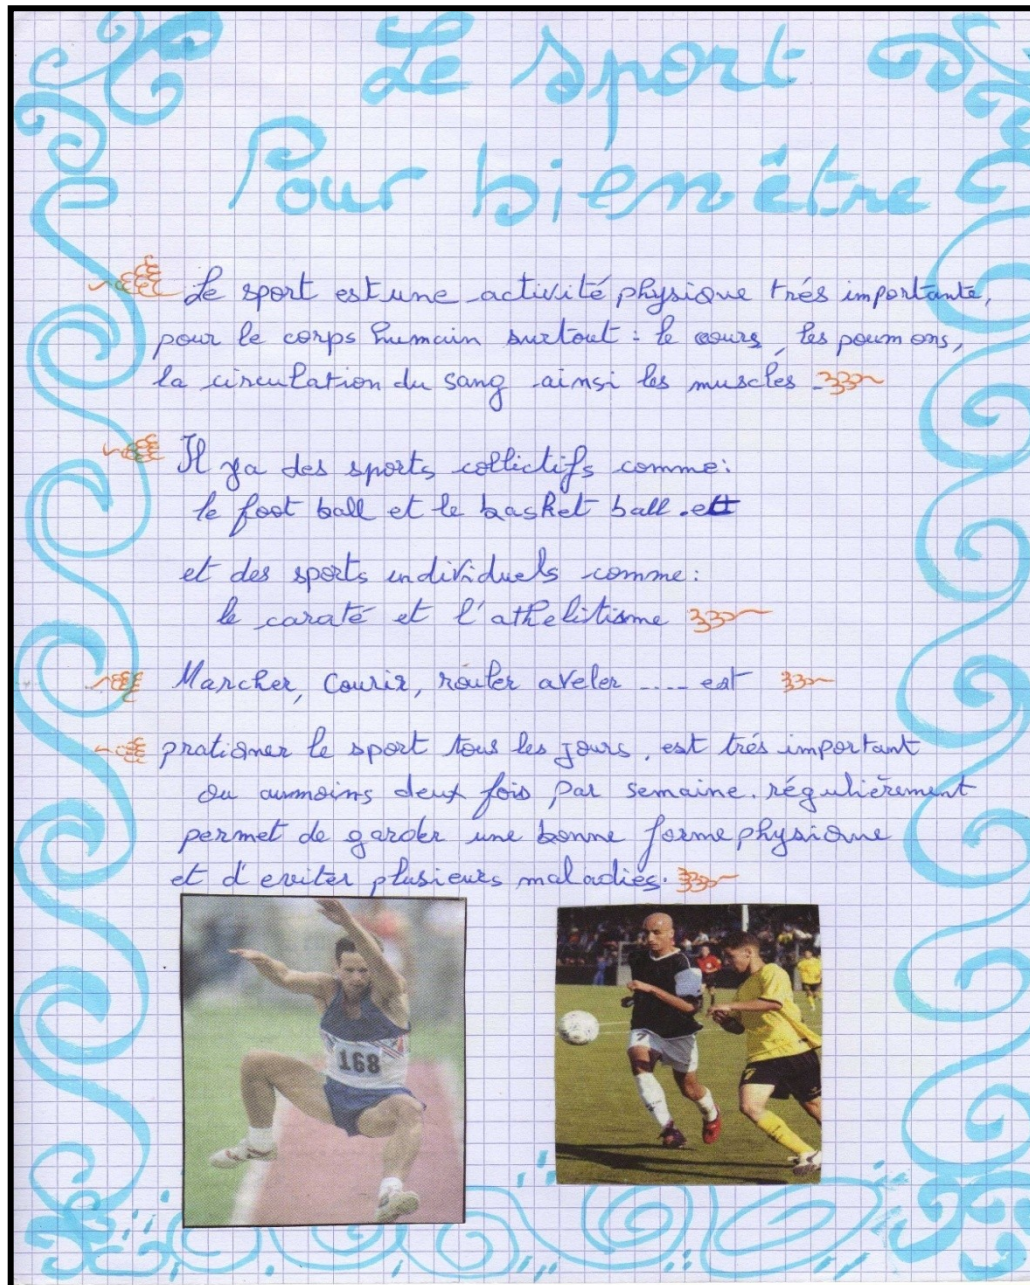 Le sport
Pour bien être
Le sport est une activité physique trés importante,
pour le corps humain surtout : le cours, les poumons,
la circulation du sang ainsi les muscles.
Il ya des sports collectifs comme:
le foot ball et le basket ball. et
et des sports individuels comme:
le caraté et l'athelitisme
Marcher, Courir, rouler aveler .... est
pratiqner le sport tous les jours, est trés important
ou aumoins deux fois par semaine. régulièrement
permet de garder une bonne forme physique
et d'eviter plusieurs maladies.
168
7